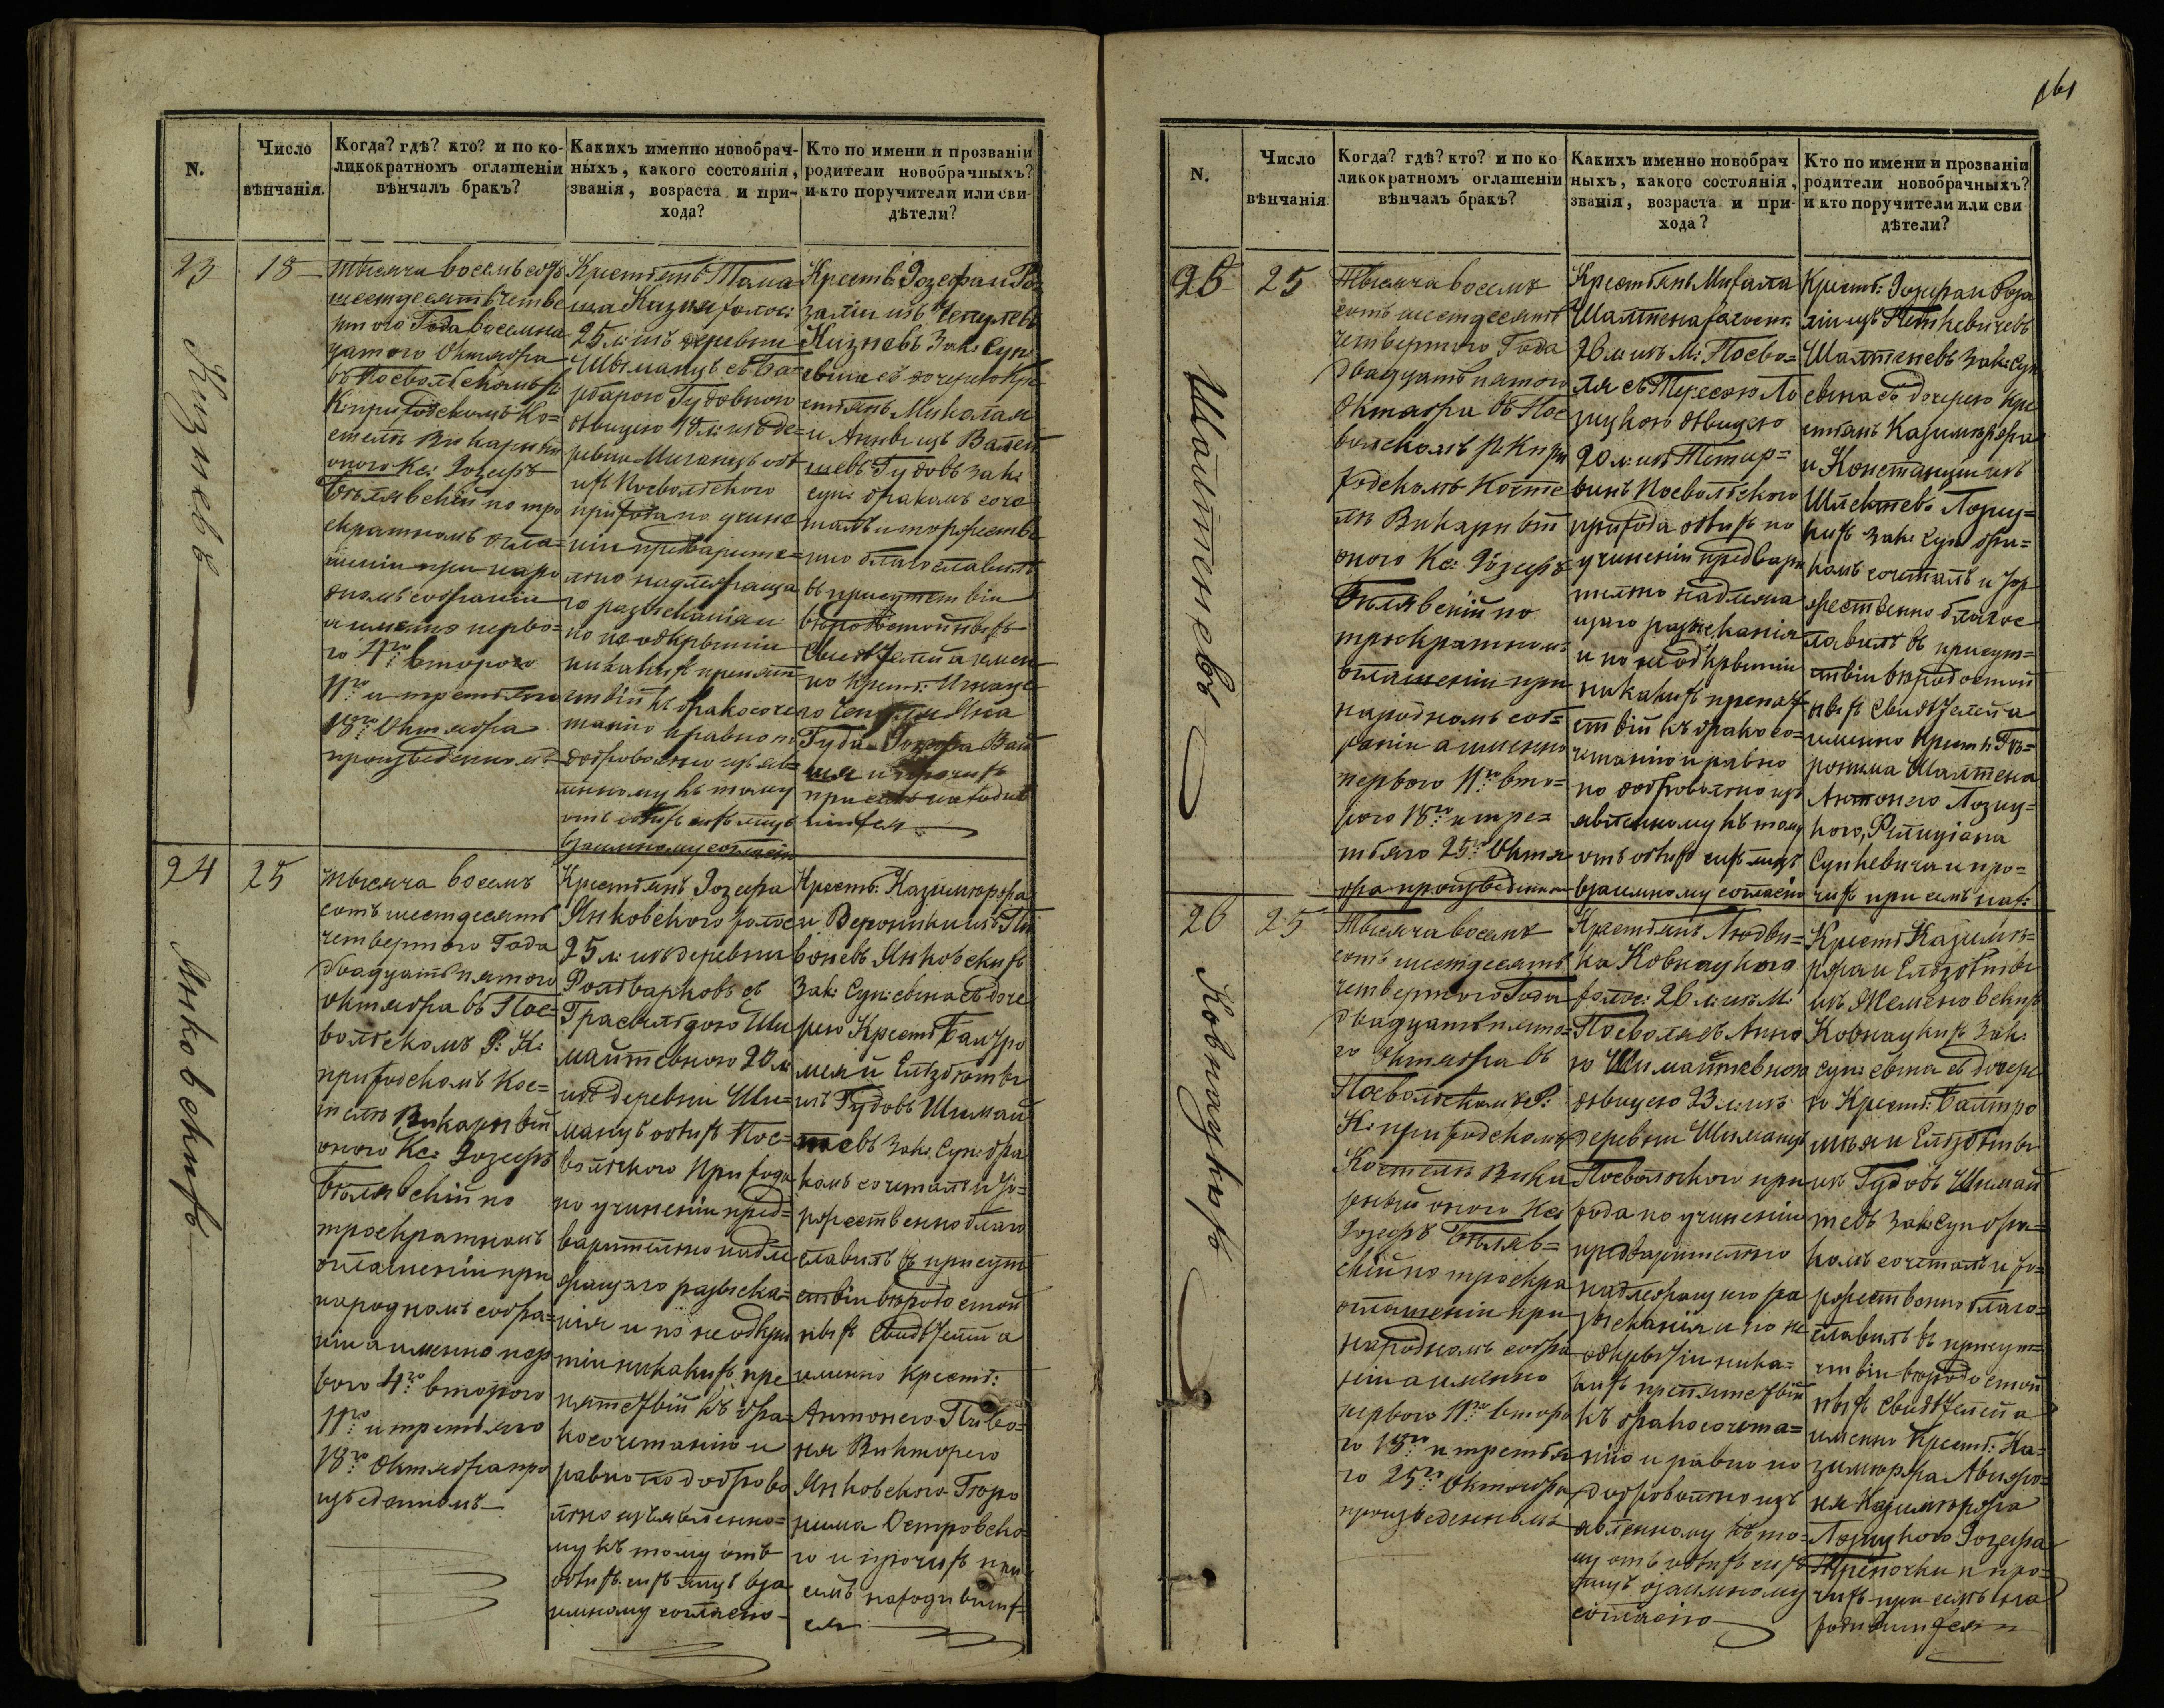 161
N.
Число
вѣнчанія.
Когда? гдѣ? кто? и по ко-
ликократномъ оглашеніи
вѣнчалъ бракъ?
Какихъ именно новобрач-
ныхъ, какого состоянія,
званія, возраста и при-
хода?
Кто по имени и прозванію
родители новобрачныхъ?
и кто поручители или сви-
дѣтели?
23
Кизневъ
18
Тысяча восемь сотъ
шестдесятъ четве
ртого Года восемна
цатого Октября
въ Посвольскомъ Р.
К. приходскомъ Ко=
стелѣ Викарный
оного Кс: Іозефъ
Бѣлявскій по тро
екратномъ огла=
шеніи при наро
дномъ собраніи
а именно перво=
го 4го второго
11го и третьяго
18го Октября
произведенномъ
Крестьянъ Тома
ша Кизня холос:
25 л: изъ деревни
Шыманцъ съ Ба=
рбарою Гудовною
дѣвицею 18 л: изъ де=
ревни Миганцъ обѣ
ихъ Посвольского
прихода по учине
ніи предварите=
льно надлежаща
го разысканія и
по не одкрытіи
никакихъ препят
ствій къ бракосоче
танію и равно по
добровольно изъяв=
ленному къ тому
отъ обѣихъ сихъ лицъ
взаимному согласію
Крестъ: Іозефа и Ро
заліи изъ Чепулевъ
Кизневъ Зак: Суп:
сына съ дочерею Кре
стьянъ Миколая
и Анны изъ Вален
шевъ Гудовъ зак:
суп: бракомъ соче
талъ и торжестве
нно благославилъ
въ присутствіи
вѣродостойныхъ
Свидѣтелей а имен
но Крест: Игнаце
го Яна
Гуда
и прочихъ
при семъ находив
шихся
24
Янковскихъ
25
Тысяча восемь
сотъ шестдесятъ
четвертого Года
двадцать пятого
Октября въ Пос=
вольскомъ Р: К:
приходскомъ Кос=
телѣ Викарный
оного Кс: Іозефъ
Бѣлявскій по
троекратномъ
оглашеніи при
народномъ собра=
ніи а именно пер
вого 4го второго
11го и третьяго
18го Октября про
изведенномъ
Крестьянъ Іозефа
Янковского холос
25 л: изъ деревни
Фольварковъ съ
Грасильдою Ши
майтевною 20 л:
изъ деревни Ши=
манцъ обѣихъ Пос=
вольского Прихода
по учиненіи пред=
варительно надле
жащаго разыска=
нія и по не одкры
тіи никакихъ пре
пятствій къ бра=
косочетанію и
равно по доброво
льно изъявленно=
му къ тому отъ
обѣихъ сихъ лицъ вза
имному согласію
Крестъ: Казимержа
и Вероники изъ Пи
воневъ Янковскихъ
Зак: Суп: сына съ доче
рею Крест: Балтро
мея и Елізбѣты
изъ Гудовъ Шимай
тевъ Зак: Суп: бра
комъ сочеталъ и то=
ржественно благо
славилъ въ присут
ствіи вѣродостой
ныхъ Свидѣтелей а
именно Крест:
Антонего Пиво=
ня Викторего
Янковского Гіеро
нима Островско=
го и прочихъ при
семъ находивших=
ся
N.
Число
вѣнчанія
Когда? гдѣ? кто? и по ко
ликократномъ оглашеніи
вѣнчалъ бракъ?
Какихъ именно новобрач
ныхъ, какого состоянія,
званія, возраста и при-
хода?
Кто по имени и прозванію
родители новобрачныхъ?
и кто поручители или сви
дѣтели?
25
Шалтеневъ
25
Тысяча восемь
сотъ шестдесятъ
четвертого Года
двадцать пятого
Октября въ Пос
вольскомъ Р. К. при
ходскомъ Косте
лѣ Викарный
оного Кс: Іозефъ
Бѣлявскій по
троекратномъ
оглашеніи при
народномъ соб=
раніи а именно
первого 11го вто=
рого 18го и тре=
тьяго 25го Октя
бра произведенномъ
Крестьянъ Михала
Шалтеня холост:
26 л: изъ М: Посво=
ля съ Тересою Ло
зицкою дѣвицею
20 л: изъ
Посвольского
прихода обѣихъ по
учиненіи предвари
тельно надлежа
щаго разысканія
и по не одкрытіи
никакихъ препят
ствій къ бракосо=
четанію и равно
по добровольно изъ
явленному къ тому
отъ обѣихъ сихъ лицъ
взаимному согласію
Крест: Іозефа и Роза
ліи изъ Петкевичевъ
Шалтеневъ Зак: Суп:
сына съ дочерею Кре
стьянъ Казимержа
и Констанціи изъ
Лозиц=
кихъ Зак: Суп: бра=
комъ сочеталъ и тор
жественно благос
лавилъ въ присут=
ствіи вѣродостой
ныхъ Свидѣтелей а
именно Крест: Гіе=
ронима Шалтеня
Антонего Лозиц=
кого, Фелиціана
Сункевича и про=
чихъ при семъ нах:
26
Ковнацкихъ
25
Тысяча восемь
сотъ шестдесятъ
четвертого Года
двадцать пято=
го Октября въ
Посвольскомъ Р.
К. приходскомъ
Костелѣ Вика
рный оного Кс:
Іозефъ Бѣляв=
скій по троекра
оглашеніи при
народномъ собра
ніи а именно
первого 11го второ
го 18го и третья
го 25го Октября
произведенномъ
Крестьянъ Людви=
ка Ковнацкого
холос: 26 л: изъ М:
Посволя съ Анно
ю Шимайтевною
дѣвицею 23 л: изъ
деревни Шиманцъ
Посвольского при
хода по учиненіи
предварительно
надлежащего ра
зысканія и по не
одкрытіи ника=
кихъ препятствій
къ бракосочета=
нію и равно по
добровольно изъ
явленному къ то=
му отъ обѣихъ сихъ
лицъ взаимному
согласію
Крест: Казиме=
ржа и Елізбѣты
изъ
Ковнацкихъ Зак:
суп: сына съ дочере
ю Крест: Балтро
мѣя и Елізбѣты
изъ Гудовъ Шимай
тевъ Зак: Суп: бра=
комъ сочеталъ и то=
ржественно благо=
славилъ въ присут=
ствіи вѣродостой
ныхъ Свидѣтелей а
именно Крест: Ка=
зимержа
Казимержа
Лозицкого Іозефа
и про=
чихъ при семъ на
ходившихся